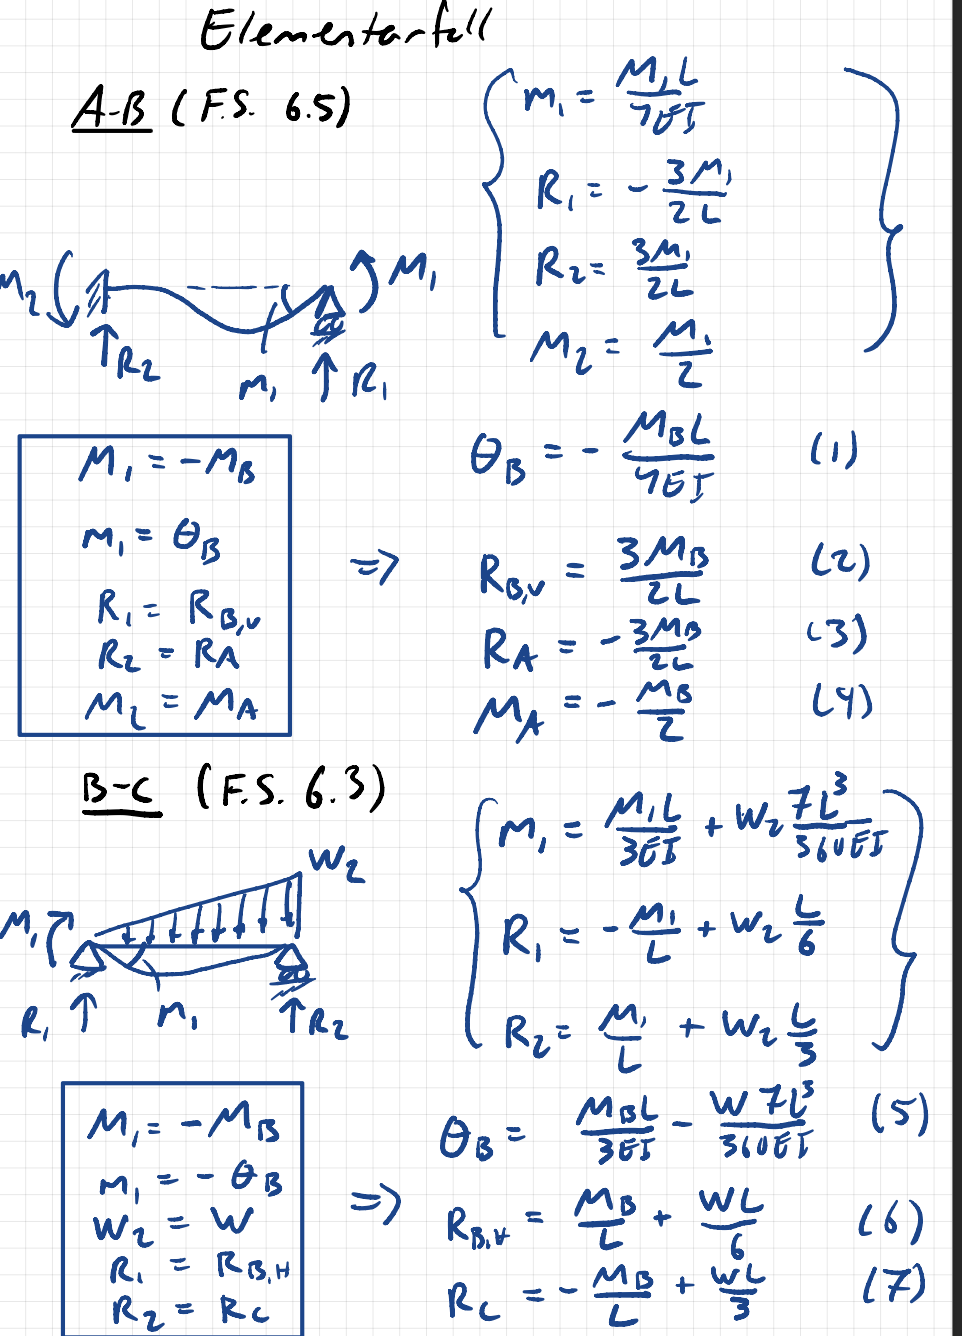 Elementarfall
A-B (F.S. 6.5)
m₁ = M₁L/4EI
R₁ = - 3M₁/2L
R₂ = 3M₁/2L
M₂ = M₁/2
M₂
M₁
R₂
m₁
R₁
M₁ = -M_B
m₁ = θ_B
R₁ = R_B,v
R₂ = R_A
M₂ = M_A
⇒
θ_B = - M_B L/4EI (1)
R_B,v = 3M_B/2L (2)
R_A = - 3M_B/2L (3)
M_A = - M_B/2 (4)
B-C (F.S. 6.3)
m₁ = M₁L/3EI + W₂ 7L³/360EI
R₁ = - M₁/L + W₂ L/6
R₂ = M₁/L + W₂ L/3
W₂
M₁
R₁
m₁
R₂
M₁ = -M_B
m₁ = - θ_B
W₂ = W
R₁ = R_B,H
R₂ = R_C
⇒
θ_B = M_B L/3EI - W 7L³/360EI (5)
R_B,H = M_B/L + WL/6 (6)
R_C = - M_B/L + WL/3 (7)